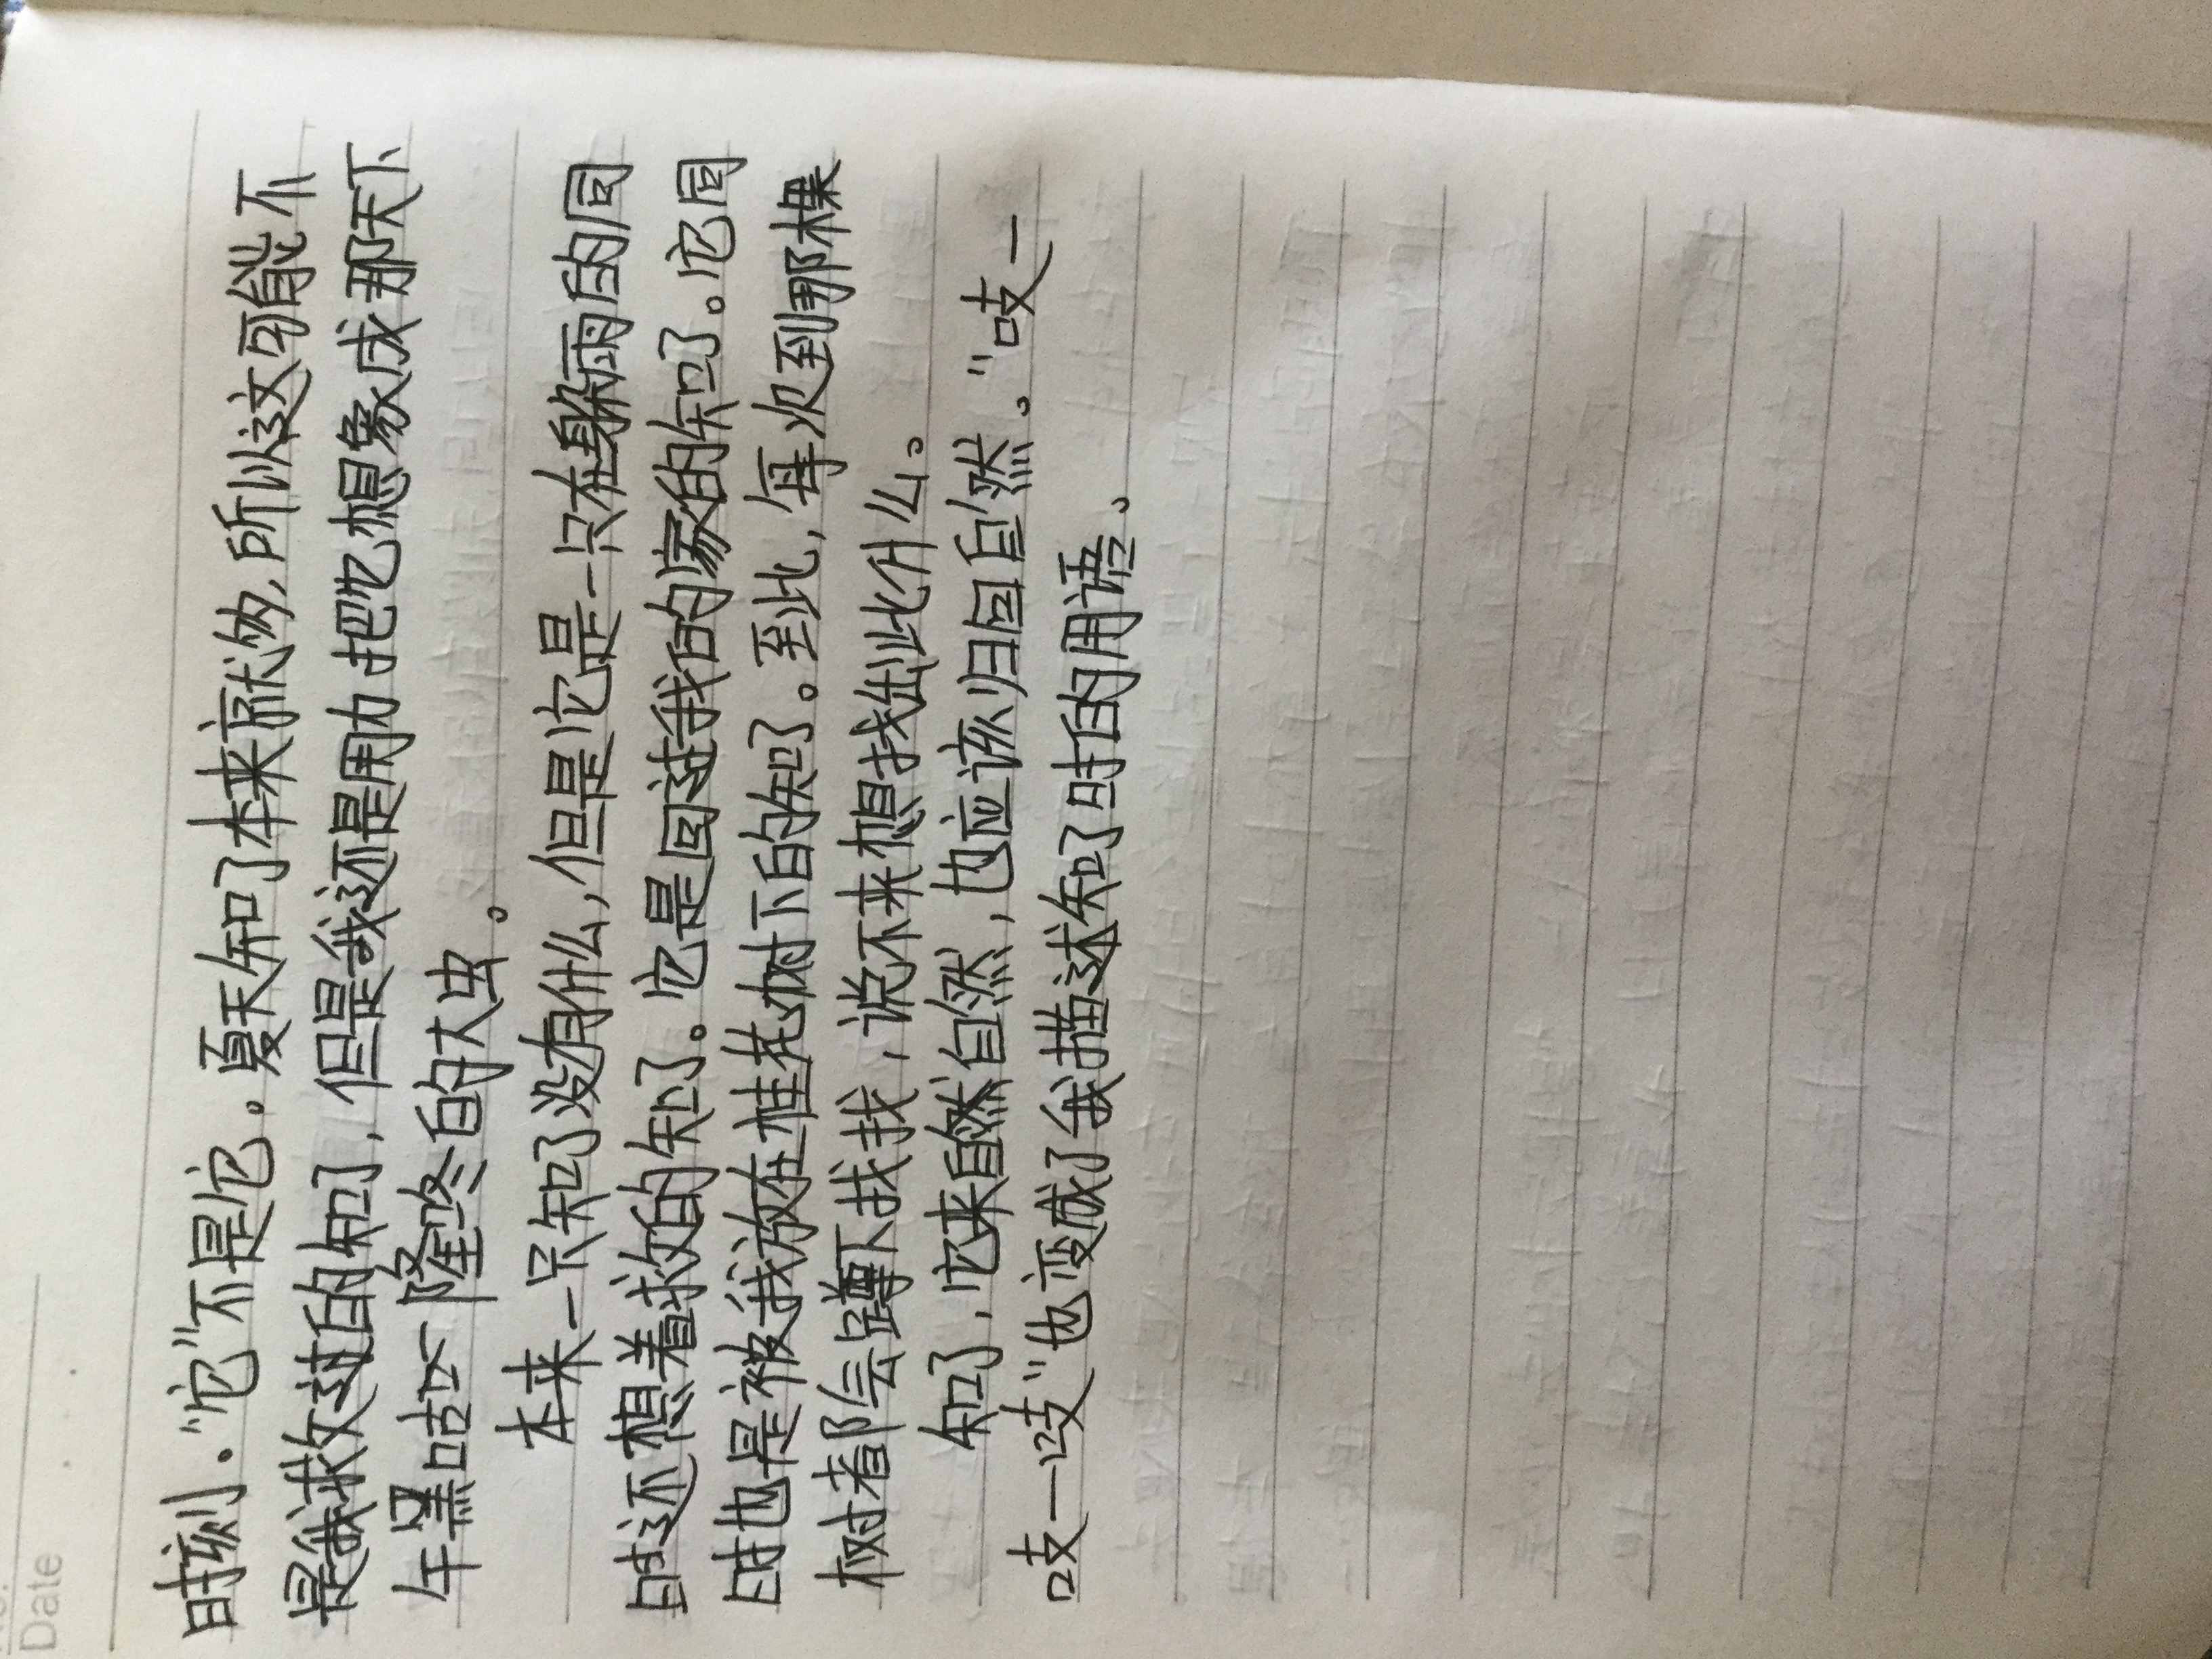 Date
时刻。“它”不是它。夏天知了本来就多,所以这可能不
是我救过的知了,但是我还是用力把它想象成那天下
午黑咕隆咚的大虫。
本来一只知了没有什么,但是它是一只在躲雨的同
时还想着求救的知了。它是回过我的家的知了。它同
时也是被我放在桂花树下的知了。至此,每次到那棵
树都会蹲下找找,说不来想找出些什么。
知了,它来自然自然,也应该归回自然。“吱一
吱一吱”也变成了我描述知了时的用语。